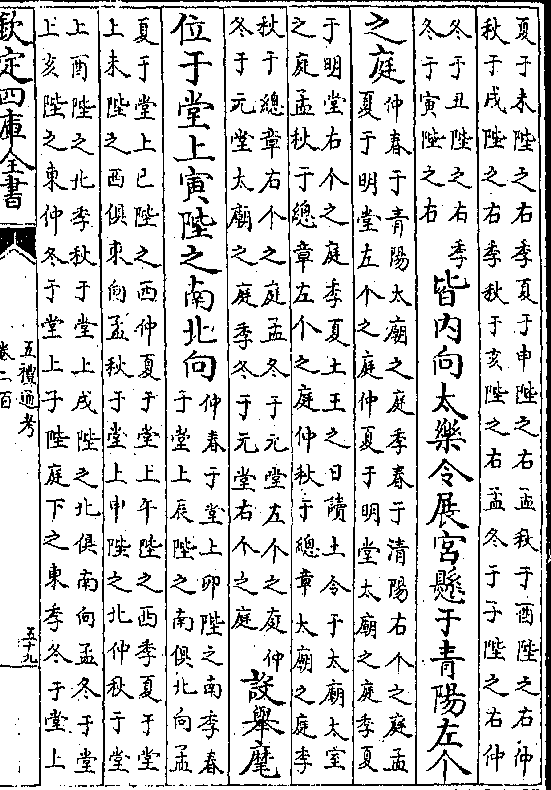 夏于未陛之右季夏于申陛之右孟秋于酉陛之右仲
秋于戌陛之右季秋于亥陛之右孟冬于子陛之右仲
冬于丑陛之右季
冬于寅陛之右
皆内向太樂令展宮懸于青陽左个
之庭
仲春于青陽太廟之庭季春于清陽右个之庭孟
夏于明堂左个之庭仲夏于明堂太廟之庭季夏
于明堂右个之庭季夏土王之日讀土令于太廟太室
之庭孟秋于總章左个之庭仲秋于總章太廟之庭季
秋于總章右个之庭孟冬于元堂左个之庭仲
冬于元堂太廟之庭季冬于元堂右个之庭
設舉麾
位于堂上寅陛之南北向
仲春于堂上卯陛之南季春
于堂上辰陛之南俱北向孟
夏于堂上巳陛之西仲夏于堂上午陛之西季夏于堂
上未陛之西俱東向孟秋于堂上申陛之北仲秋于堂
上酉陛之北季秋于堂上戌陛之北俱南向孟冬于堂
上亥陛之東仲冬于堂上子陛庭下之東季冬于堂上
欽定四庫全書
五禮通考
卷二百
五十九